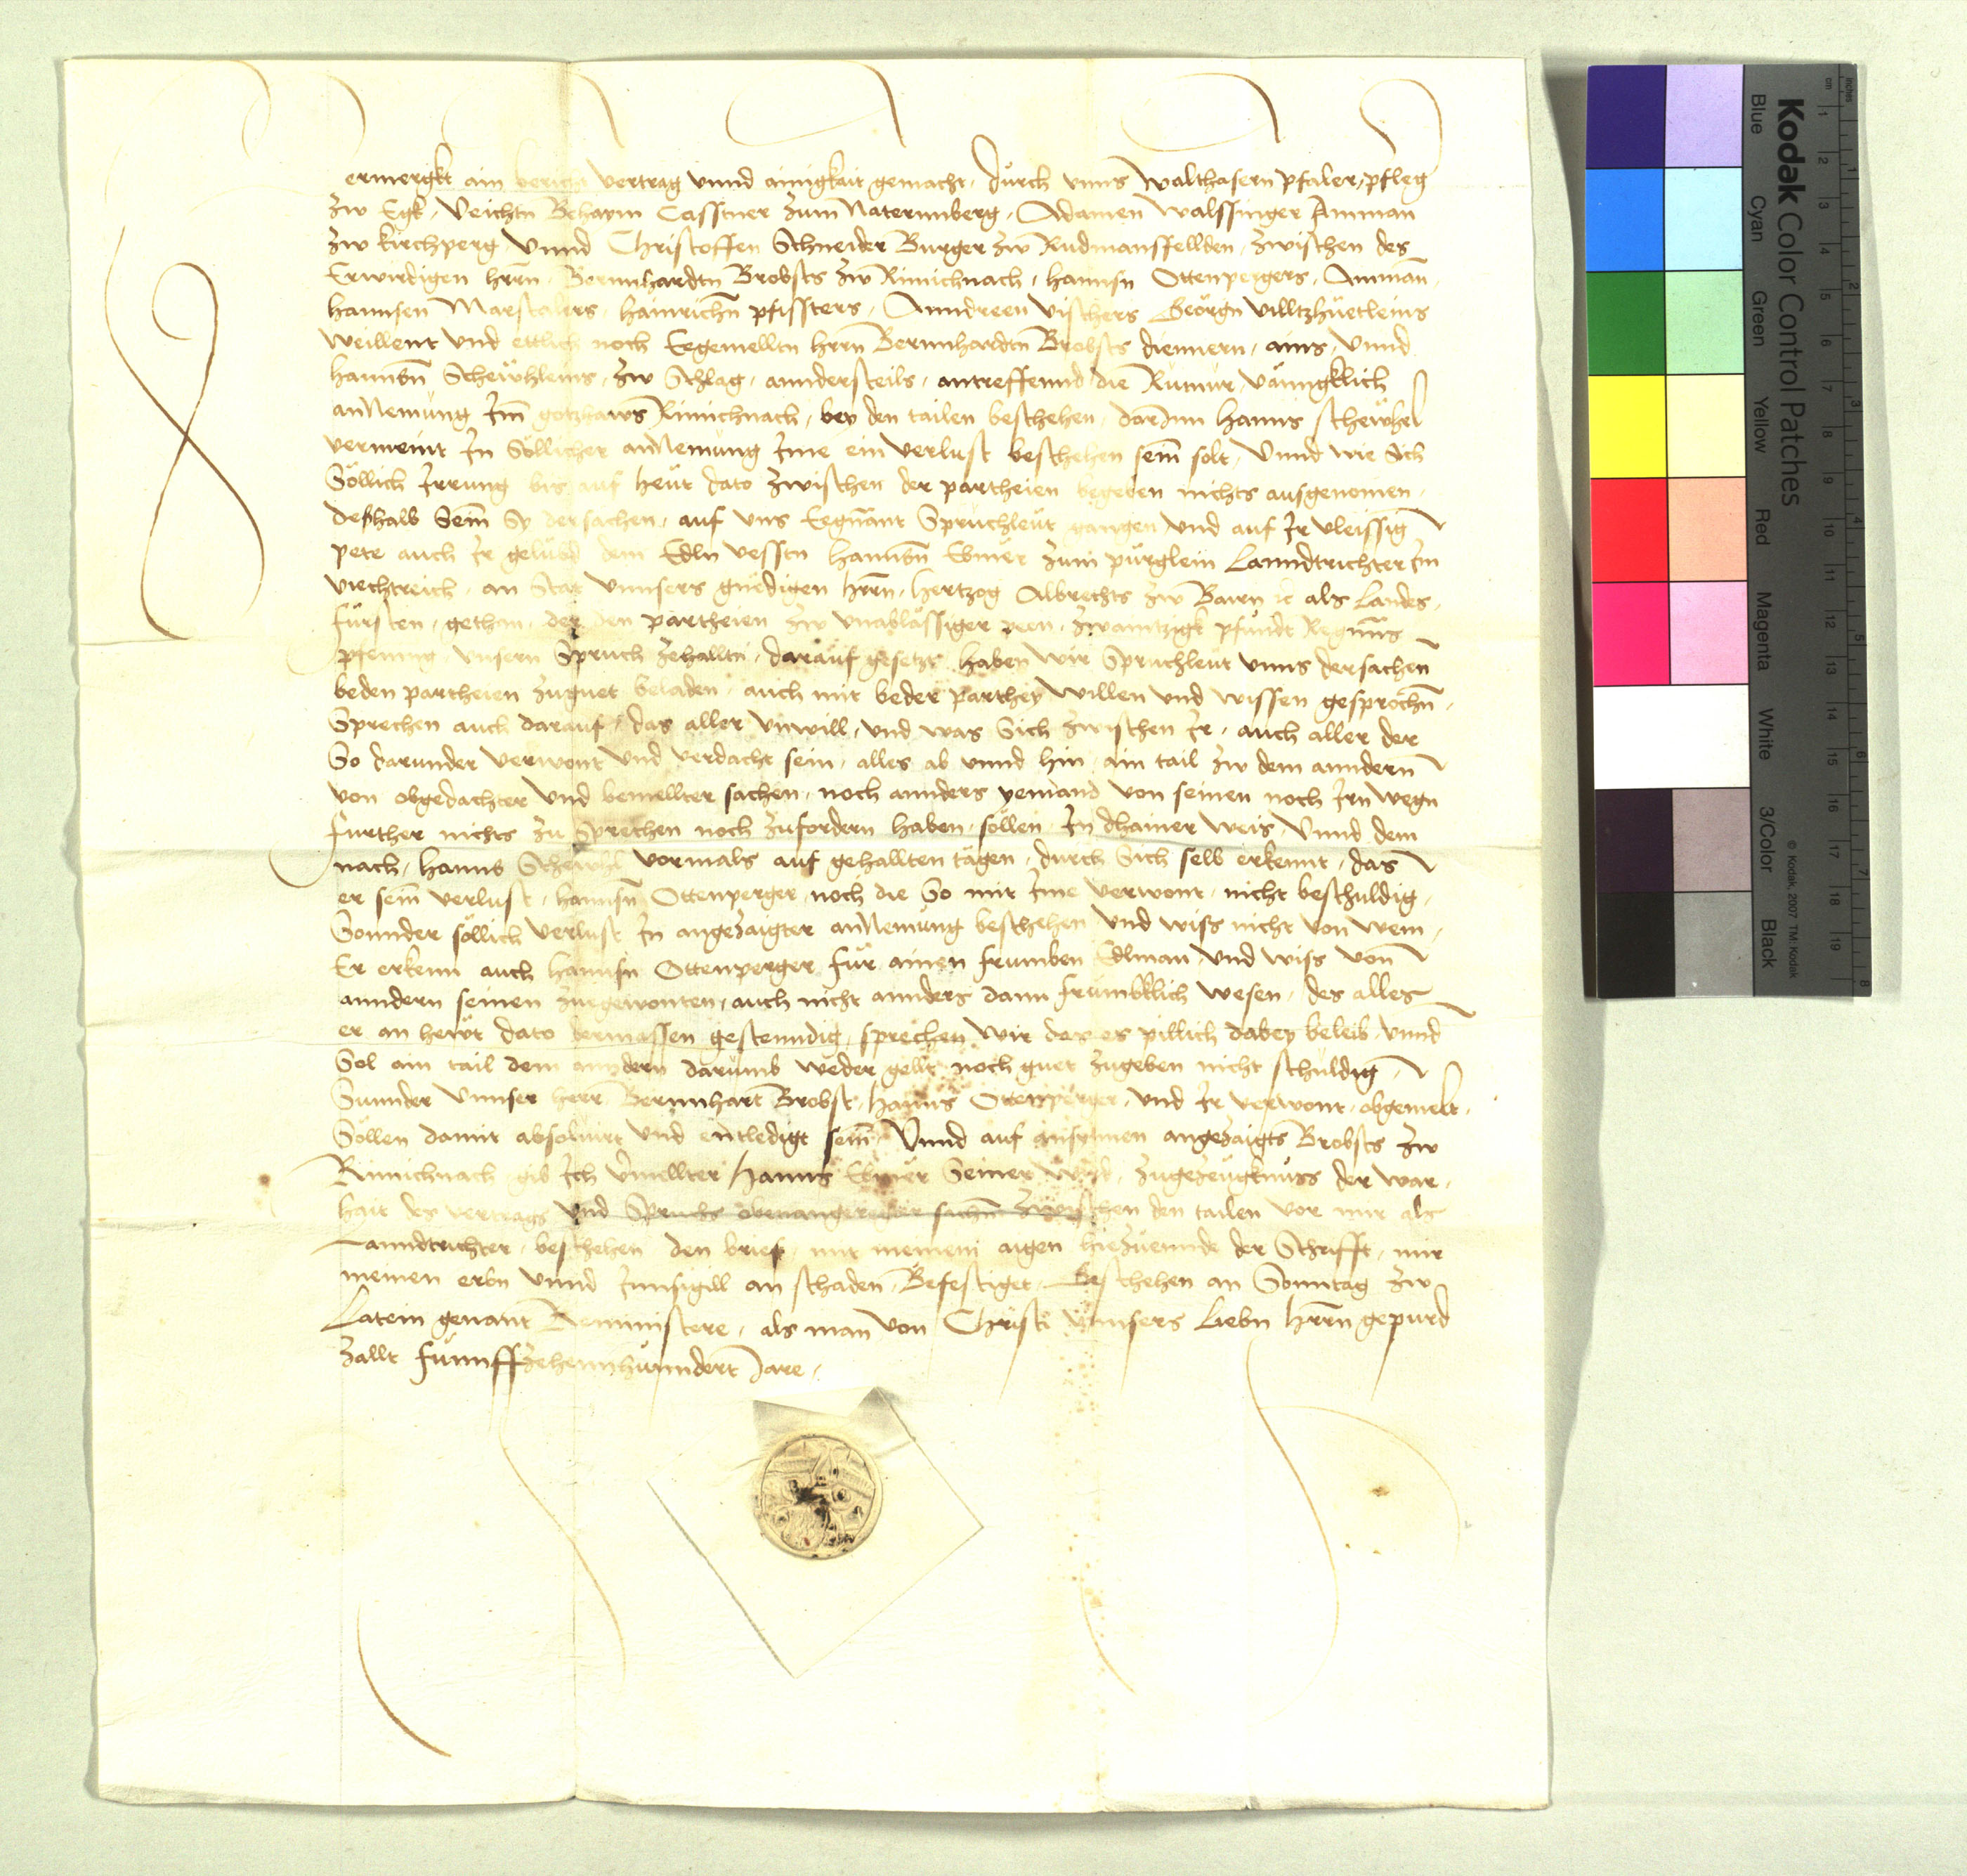 Vermergkt ain bericht vertrag vnnd ainigkait gemacht, durch vnns Walthasern Pfaler, pfleg
zw Egk, Veichtn Behaym Casstner zum Naternnberg, Adamen Walssinger Amman
zw kirchperg Vnnd Christoffen Schneider Burger zw Rudmanssellden, zwischen des
Erwirdigen hern, Bernnhardtn Brobsts zw Rinichnach, hannsn Ottenpergers, Amman,
hannsen Marstalers, hainrichn pfissters, Anndreen vischers Georgn villtzhüetleins
weillent vnd ettlich noch Eegemelltn hern Bernnhardtn Brobsts diennern, ains, Vnnd
hannsn Schewhleins, zw Schlag, anndersteils, antreffennd die Rumur, vanngklich
anNemung Im gotzhaws Rinichnach, bey den tailen beschehen, darInn hanns schewhel
vermeint In Söllicher anNemung Ime ein verlust beschehen sein solt, Vnnd wie sich
Söllich Irrung bis auf heut dato zwischen der partheien begeben nichts ausgenomen,
deshalb Sein Sy der sachen, auf vns Eegnant Spruchleut gangen, vnd auf Ir vleissig
pete auch Ir gelübd dem Edln vesstn hannsn Ebmer zum pürglein Lanndtrichter Im
viechtreich, an Stat vnnsers gnedigen hern, hertzog Albrechts zw Bairn ec als Landes,
fürsten, gethan, der den partheien zw vnablässiger peen, zwaintzigk pfundt Regnns
pfening, vnsern Spruch zehalltn, darauf gesetzt haben wir Spruchleut vnns der sachen
beden partheien zuguet beladen, auch mit beder parthey willen vnd wissen gesprochn,
Sprechen auch darauf, das aller vnwill, vnd was Sich zwischen Ir, auch aller der
So darunder verwont vnd verdacht sein, alles ab vnnd hin, ain tail zw dem anndern
von obgedachter vnd bemellter sachen, noch annders yemand von seinen noch Irn wegn
further nichts zu Sprechen noch zufordern haben, sollen In dhainer weis, Vnnd dem
nach, hanns Schewhl vormals auf gehallten tägen, durch Sich selb erkennt, das
er sein verlust, hannsn Ottenperger, noch die So mit Ime verwont, nicht beschuldig,
Sonnder söllich verlust In angezaigter anNemung beschehen vnd wiss nicht von wem,
Er erkenn auch hannsn Ottenperger für ainen frumben Edlman vnd wiss von
anndern seinen zuegewonten, auch nicht annders dann frumbklich wesen, des alles
er an hewt dato dermassen gestenndig, sprechen wir das es pillich dabey beleib, vnnd
Sol ain tail dem anndern darumb weder gellt noch guet zugeben nicht schuldig,
Sunnder Vnnser herr Bernnhart Brobst, hanns Ottenperger, vnd Ir verwont, obgemelt,
Söllen damit absoluirt vnd entledigt sein, Vnnd auf ansynnen angezaigts Brobsts zw
Rinichnach gib Ich vmellter hanns Ebmer Seiner wird, zugezeugknuss der war,
hait des vertrags vnd Spruchs obenangeregter sachn zwyschen den tailen vor mir als
Lanndtrichter, beschehen den brief, mit meinem aigen hiezuennde der Schrifft, mir
meinen erbn vnnd Innsigill an schaden, Befestiget, Beschehen an Sonntag zw
Latein genant Reminiscere, als man von Christi vnnsers Liebn hern gepurd
zallt fünffzehennhunndert Iare,
Kodak Color Control Patches
Blue Cyan Green Yellow Red Magenta White 3/Color Black
© Kodak, 2007 TM: Kodak
inches 1 2 3 4 5 6 7 8
cm 1 2 3 4 5 6 7 8 9 10 11 12 13 14 15 16 17 18 19